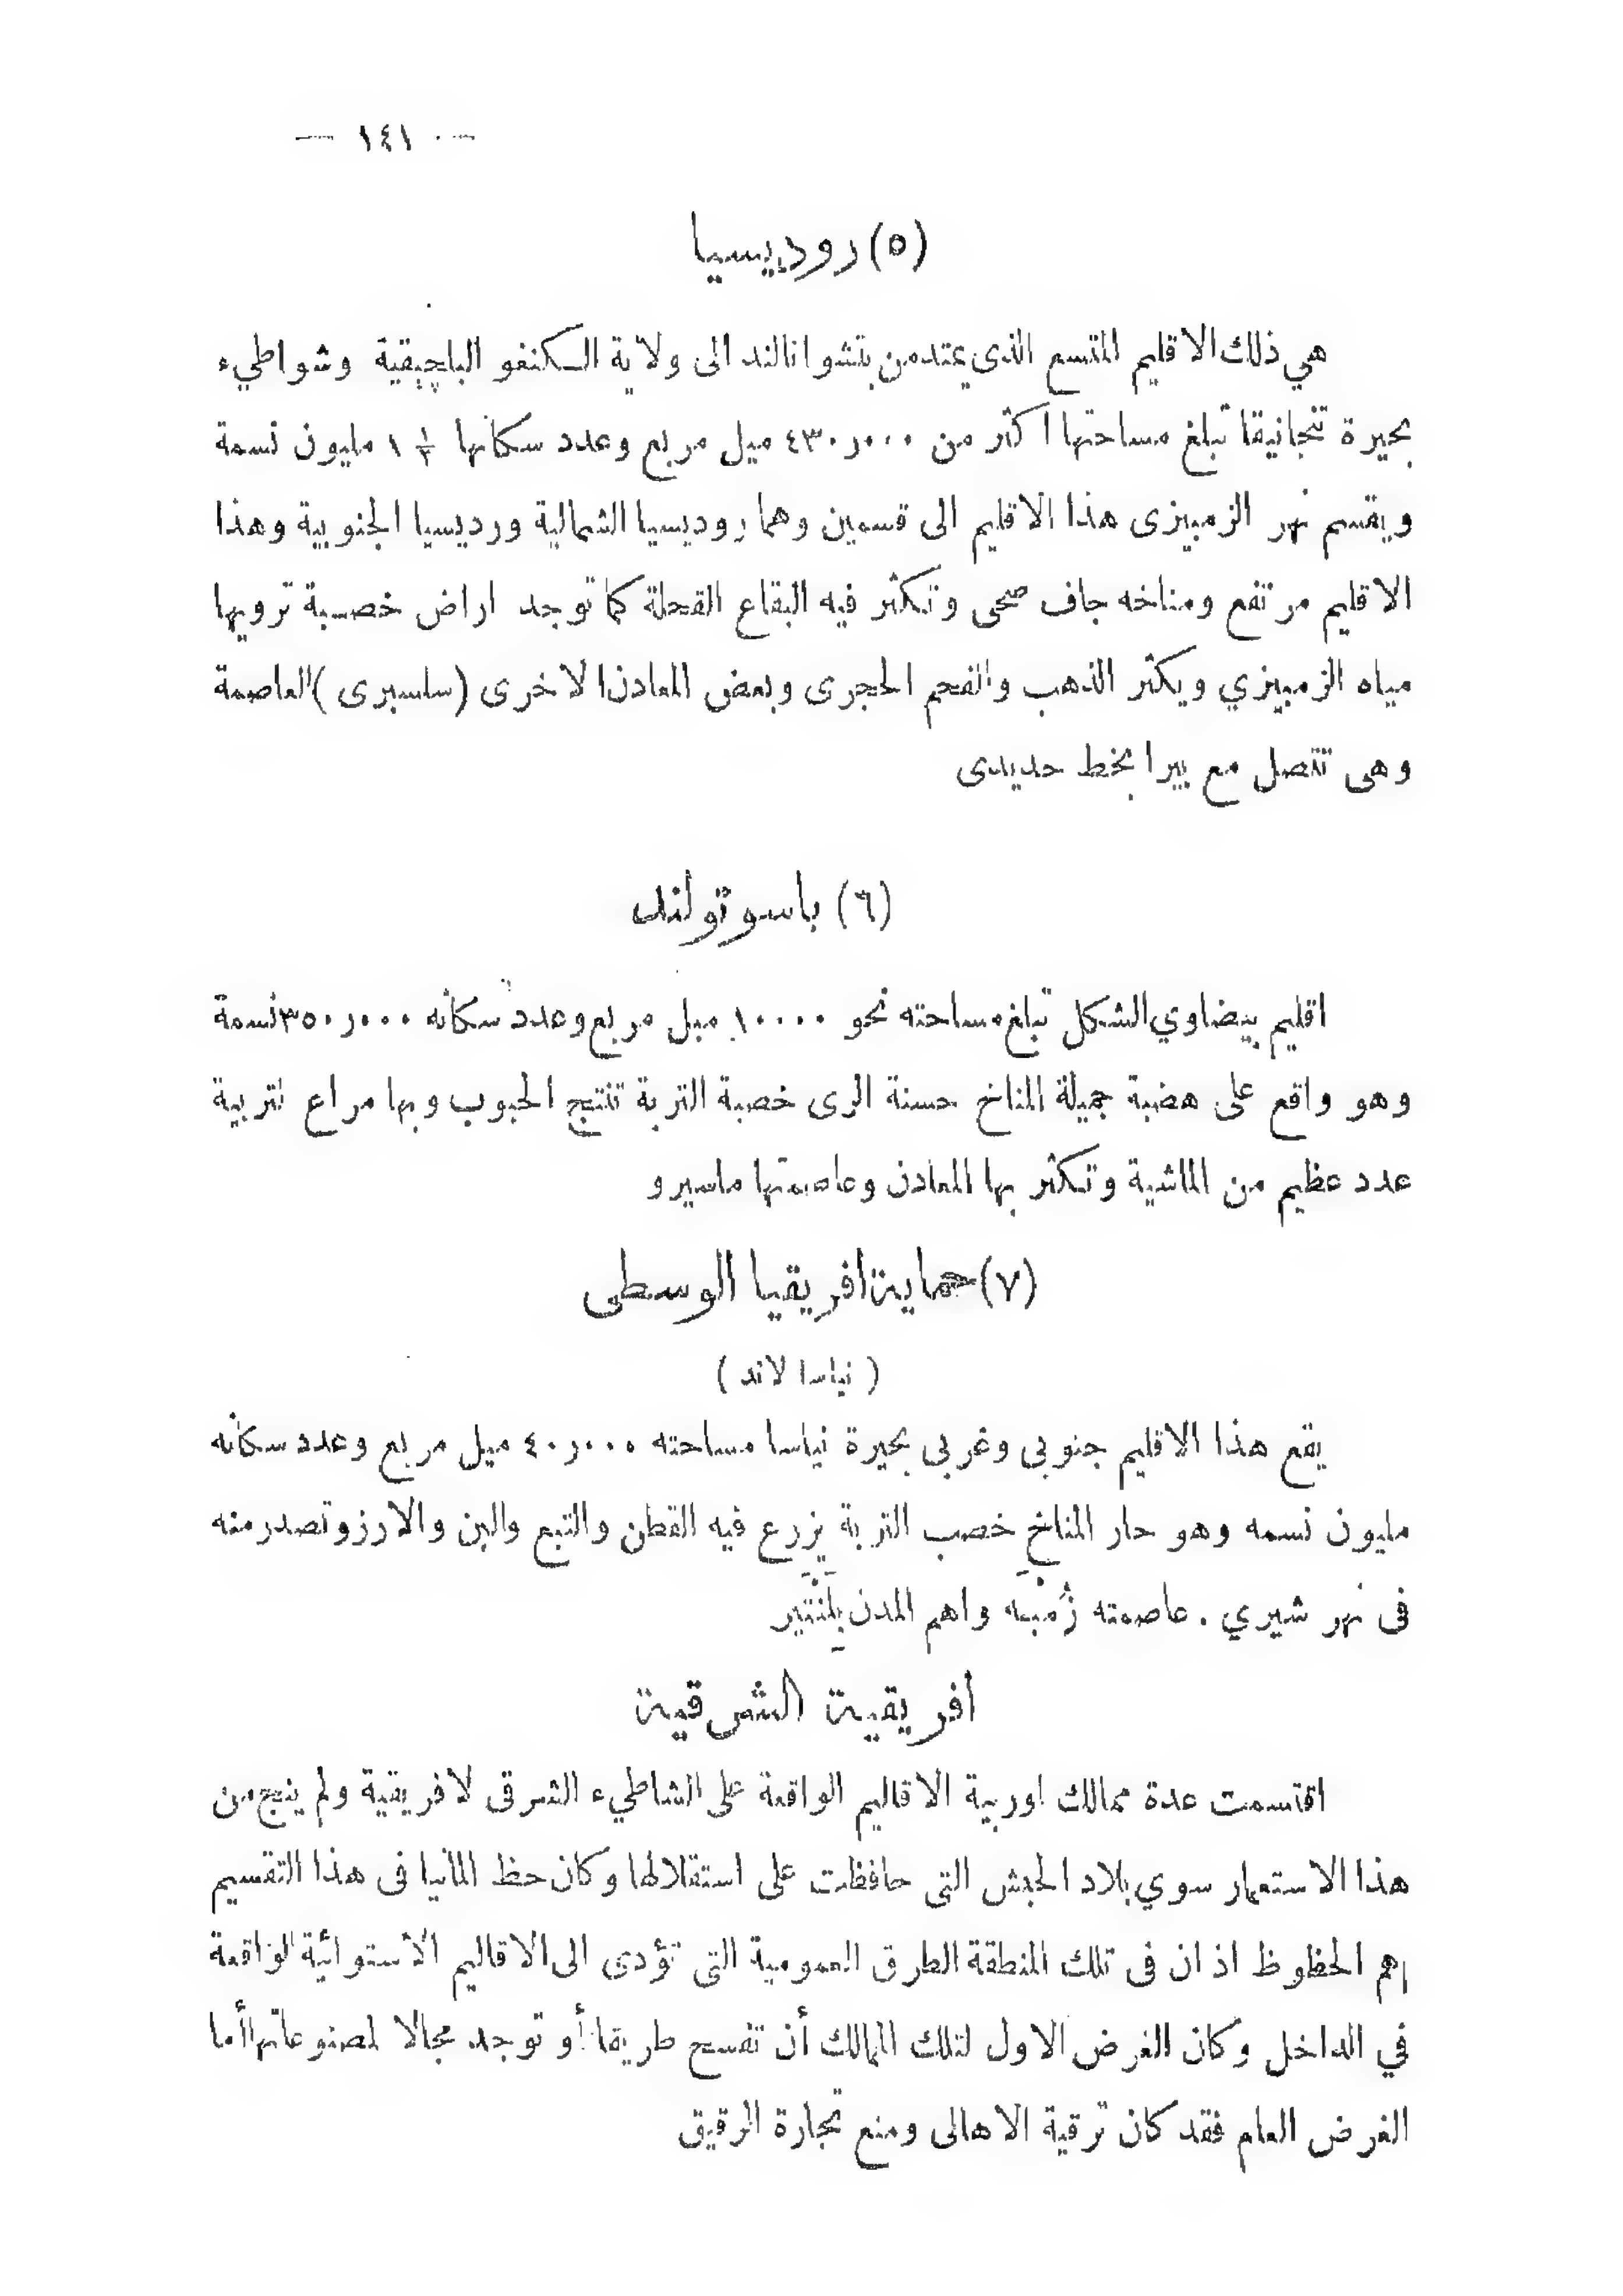 — ١٤١ —
(٥) روديسيا
هي ذلك الاقليم المتسع الذى يمتد من بتشوانالند الى ولاية الكنغو البلجيقية وشواطيء
بحيرة تنجانيقا تبلغ مساحتها اكثر من ٤٣٠٫٠٠٠ ميل مربع وعدد سكانها ١ مليون نسمة
ويقسم نهر الزمبيزى هذا الاقليم الى قسمين وهما روديسيا الشمالية ورديسيا الجنوبية وهذا
الاقليم مرتفع ومناخه جاف صحى وتكثر فيه البقاع القحلة كما توجد اراض خصبة ترويها
مياه الزمبيزي ويكثر الذهب والفحم الحجرى وبعض المعادن الاخرى (سلسبرى) العاصمة
وهى تتصل مع بيرا بخط حديدى
(٦) باسوتولند
اقليم بيضاوي الشكل تبلغ مساحته نحو ١٠٠٠٠ ميل مربع وعدد سكانه ٣٥٠٫٠٠٠ نسمة
وهو واقع على هضبة جميلة المناخ حسنة الرى خصبة التربة تنتج الحبوب وبها مراع لتربية
عدد عظيم من الماشية وتكثر بها المعادن وعاصمتها ماسيرو
(٧) حماية افريقيا الوسطى
( نياسا لاند )
يقع هذا الاقليم جنوبى وغربى بحيرة نياسا مساحته ٤٠٫٠٠٠ ميل مربع وعدد سكانه
مليون نسمه وهو حار المناخ خصب التربة يزرع فيه القطن والتبغ والبن والارز وتصدر منه
فى نهر شيري . عاصمته زُمْبَه واهم المدن بِلَنْتَير
افريقية الشرقية
اقتسمت عدة ممالك اوربية الاقاليم الواقعة على الشاطيء الشرقى لافريقية ولم ينج من
هذا الاستعمار سوي بلاد الحبش التى حافظت على استقلالها وكان حظ المانيا فى هذا التقسيم
اهم الحظوظ اذ ان فى تلك المنطقة الطرق العمومية التى تؤدى الى الاقاليم الاستوائية الواقعة
في الداخل وكان الغرض الاول لتلك الممالك أن تفسح طريقا أو توجد مجالا لمصنوعاتها أما
الغرض العام فقد كان ترقية الاهالى ومنع تجارة الرقيق